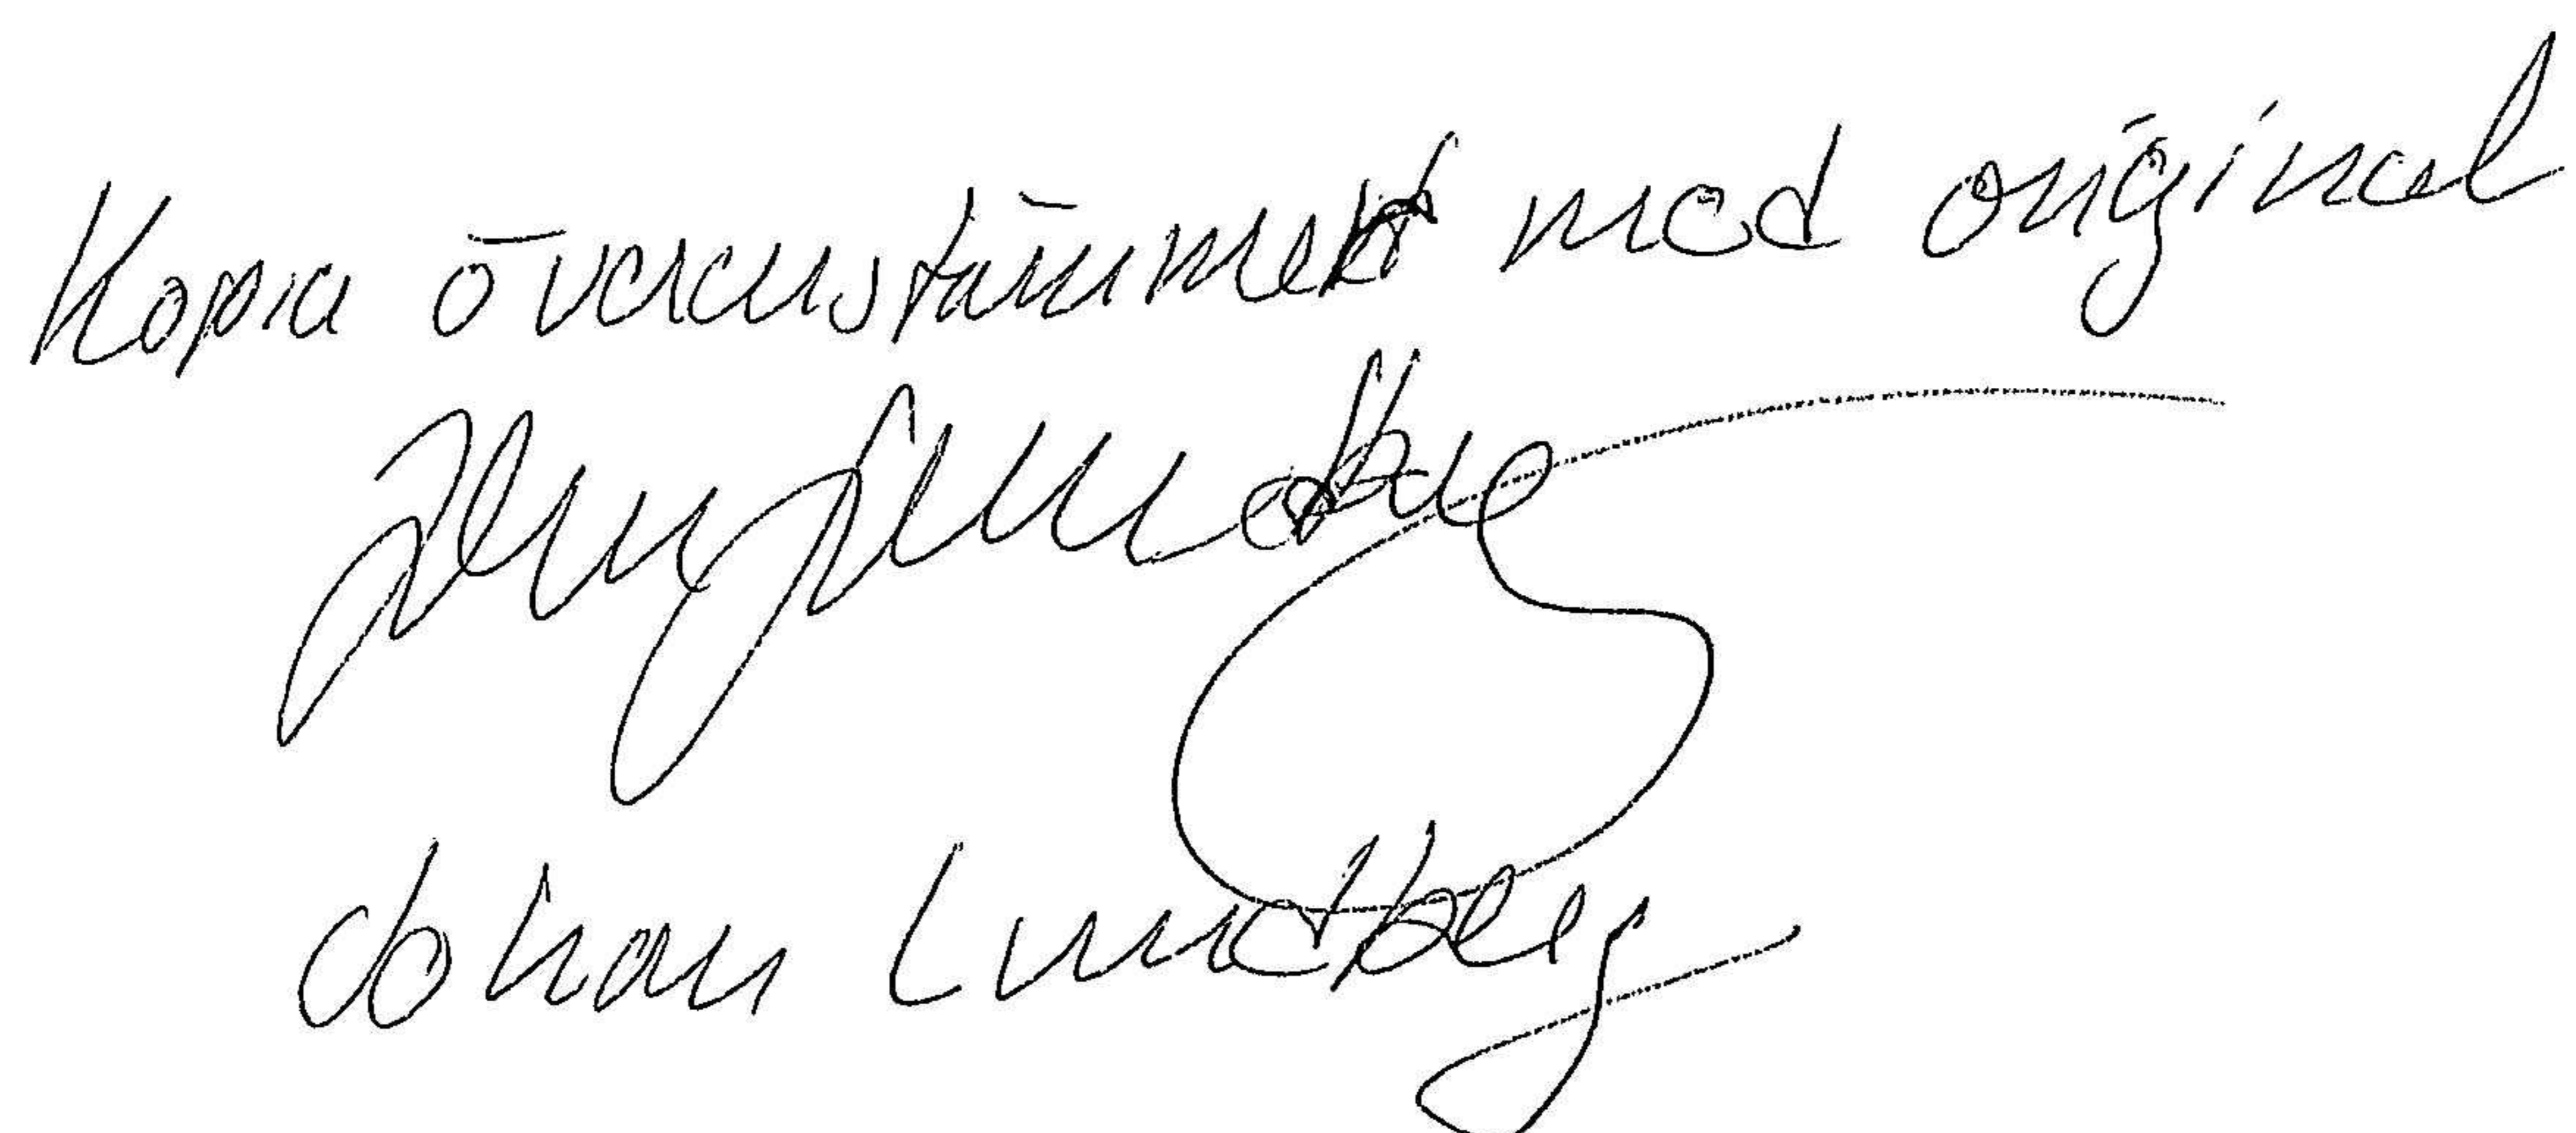 Kopia överensstämmer med original
Johan Lundberg